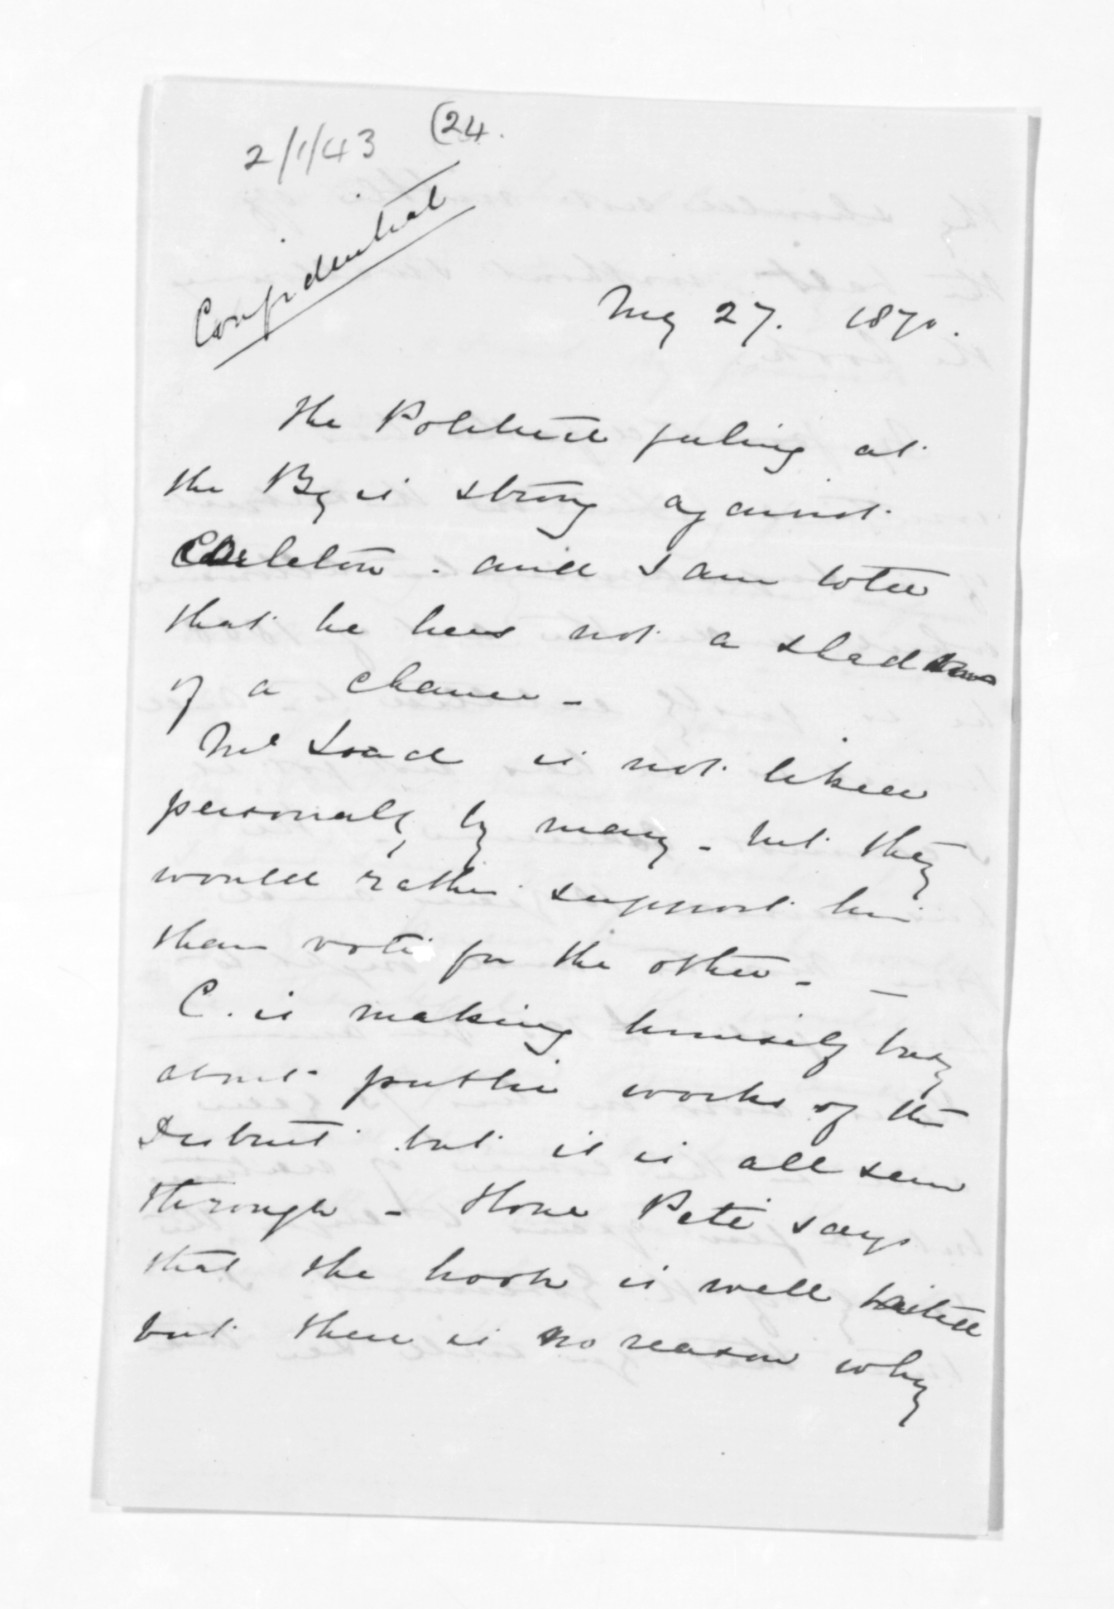 2/1/43 (24.
Confidential
May 27. 1870.
The Political feeling at
the Bay is strong against
Carleton. and I am told
that he has not a shadow
of a chance -
McLeod is not liked
personally by many - but they
would rather support him
than vote for the other. -
C. is making himself busy
about public works of the
District but it is all seen
through - Hone Pete says
that the hook is well baited
but there is no reason why